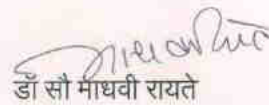 डॉ सौ माधवी रायते